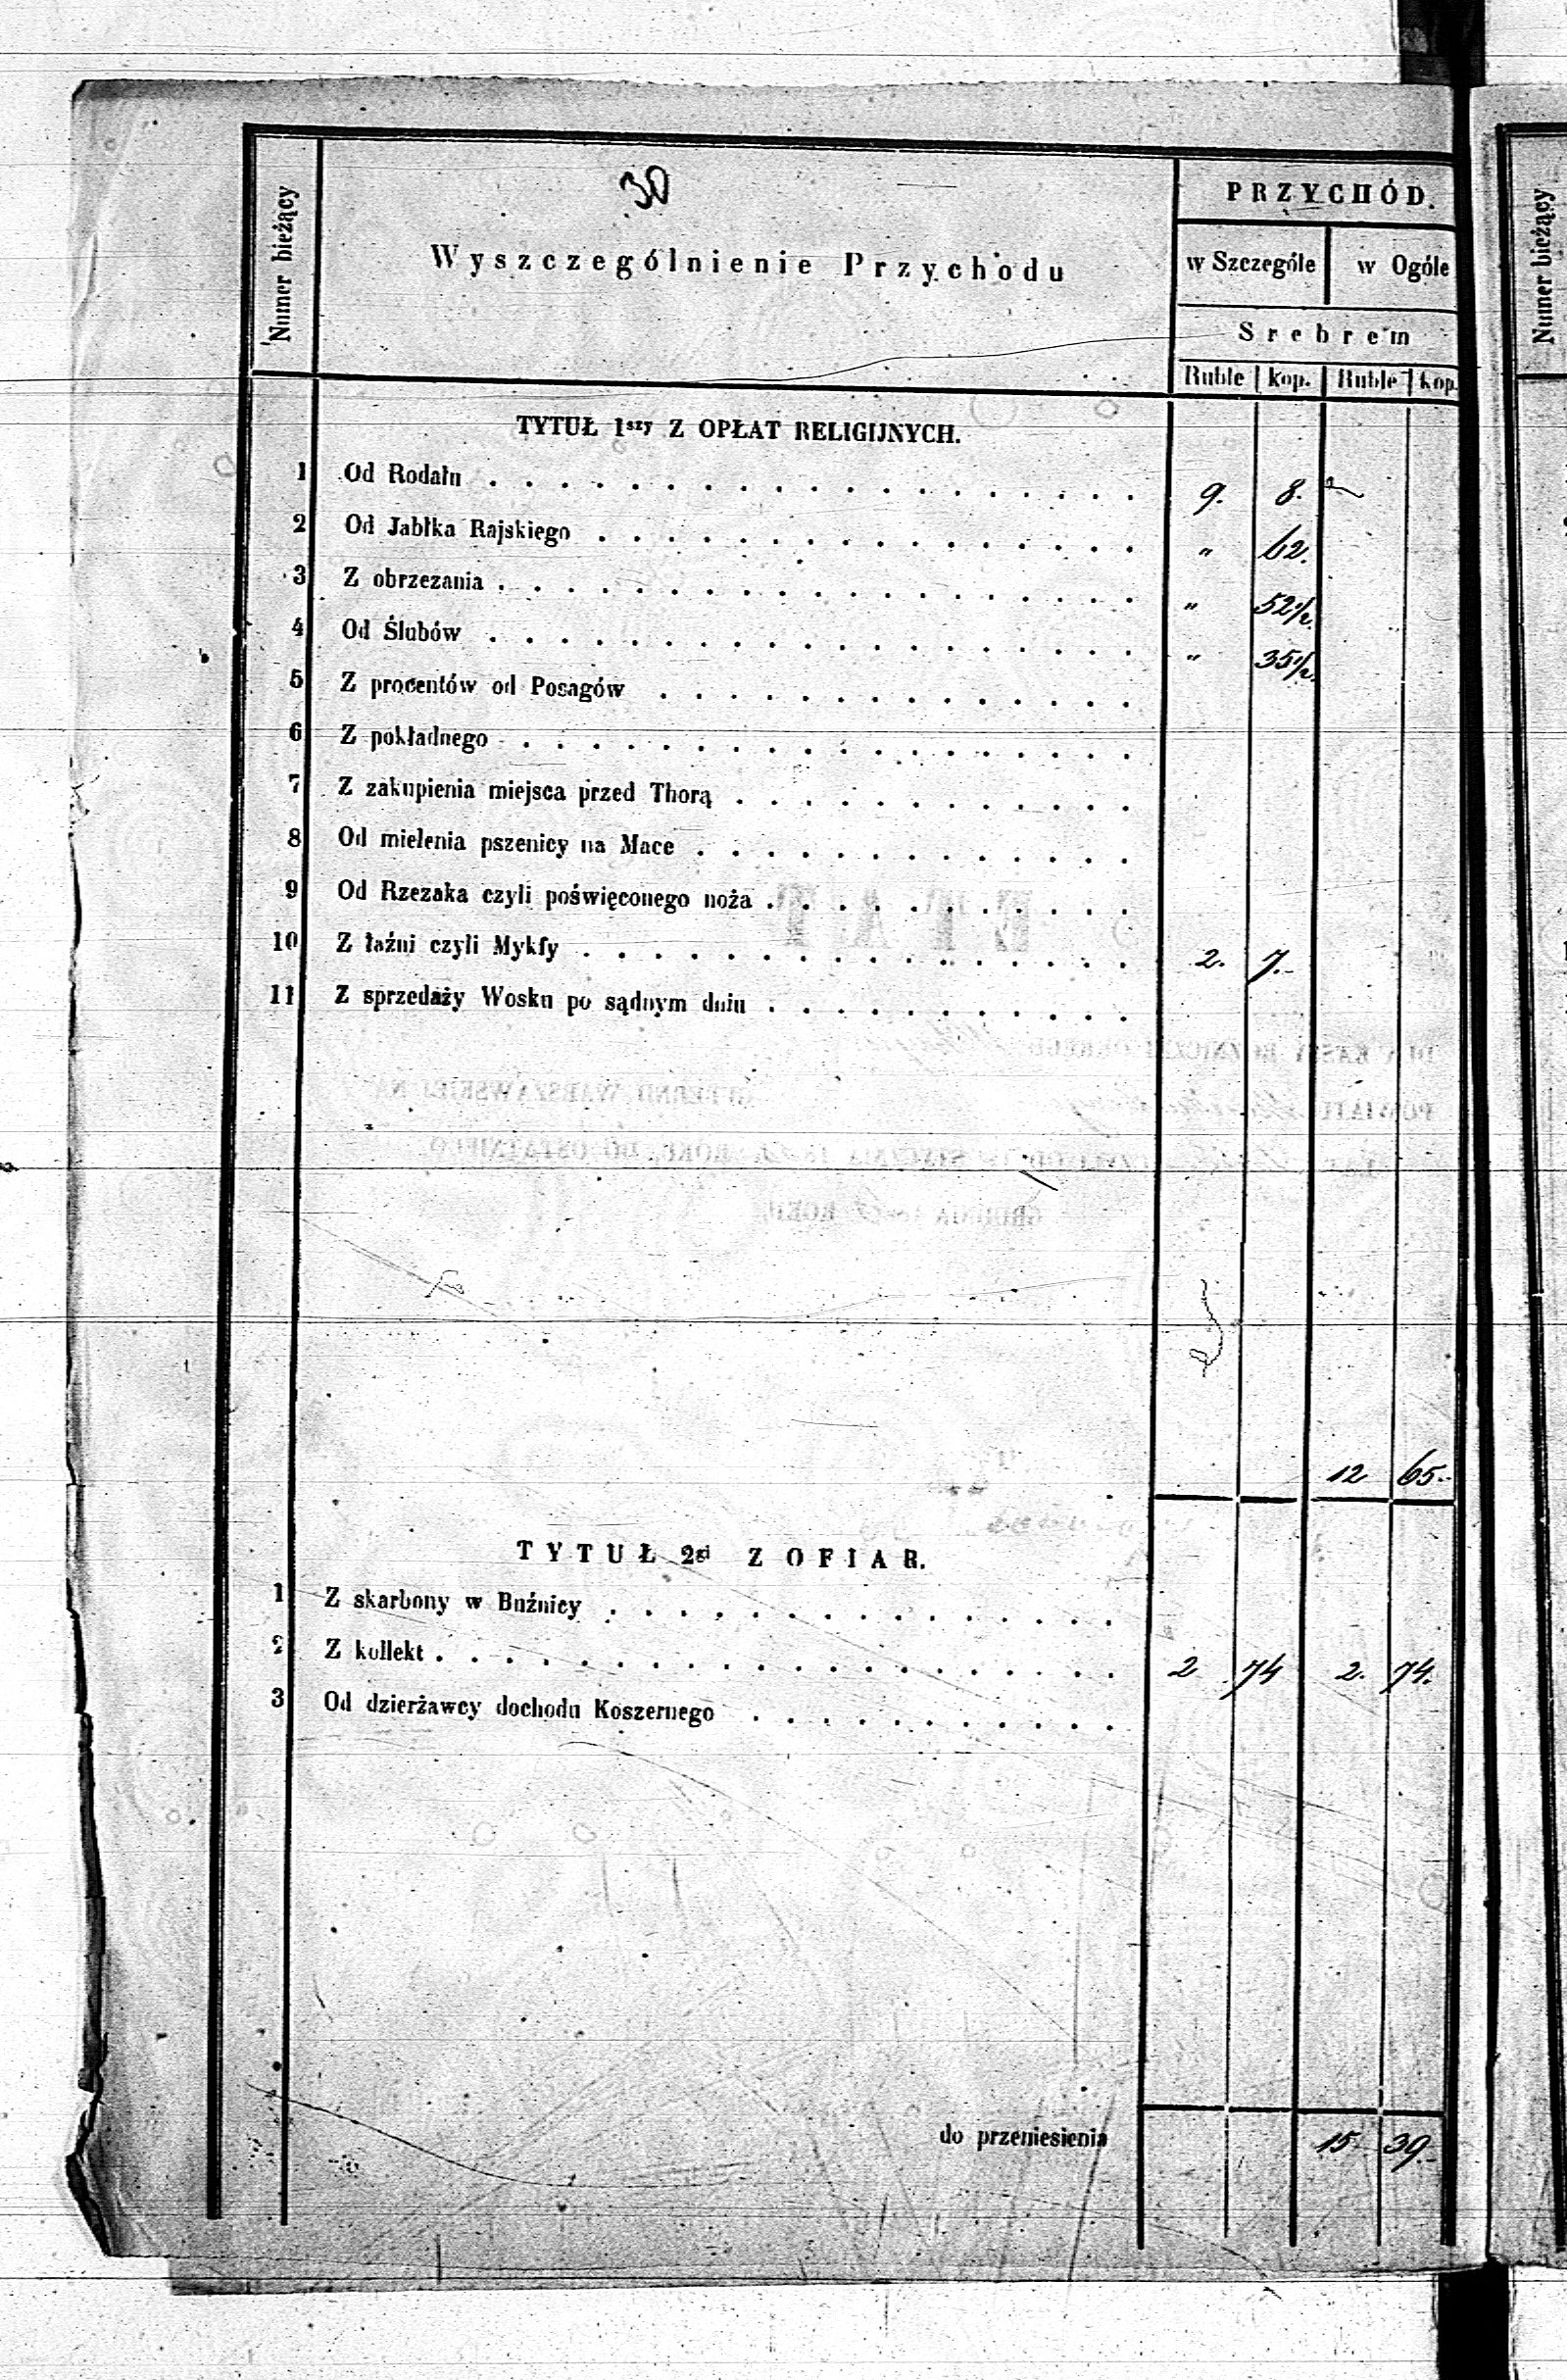 30
Numer bieżący
Wyszczególnienie Przychodu
PRZYCHÓD.
w Szczególe w Ogóle
Srebrem
Ruble kop. Ruble kop.
TYTUŁ 1szy Z OPŁAT RELIGIJNYCH.
1 Od Rodału . . . . . . . . . . . . . . . . . . . 9. 8.
2 Od Jabłka Rajskiego . . . . . . . . . . . . . . . . " 62.
3 Z obrzezania . . . . . . . . . . . . . . . . . . " 52 1/2.
4 Od Ślubów . . . . . . . . . . . . . . . . . . . " 35 1/2.
5 Z procentów od Posagów . . . . . . . . . . . . . .
6 Z pokładnego . . . . . . . . . . . . . . . . . .
7 Z zakupienia miejsca przed Thorą . . . . . . . . . . . .
8 Od mielenia pszenicy na Mace . . . . . . . . . . . . .
9 Od Rzezaka czyli poświęconego noża . . . . . . . . . . .
10 Z łaźni czyli Mykfy . . . . . . . . . . . . . . . . 2. 7.-
11 Z sprzedaży Wosku po sądnym dniu . . . . . . . . . . .
12 65.-
TYTUŁ 2gi Z OFIAR.
1 Z skarbony w Buźnicy . . . . . . . . . . . . . . .
2 Z kollekt . . . . . . . . . . . . . . . . . . . . 2 74 2. 74.
3 Od dzierżawcy dochodu Koszernego . . . . . . . . . . .
do przeniesienia 15 39.-
Numer bieżący